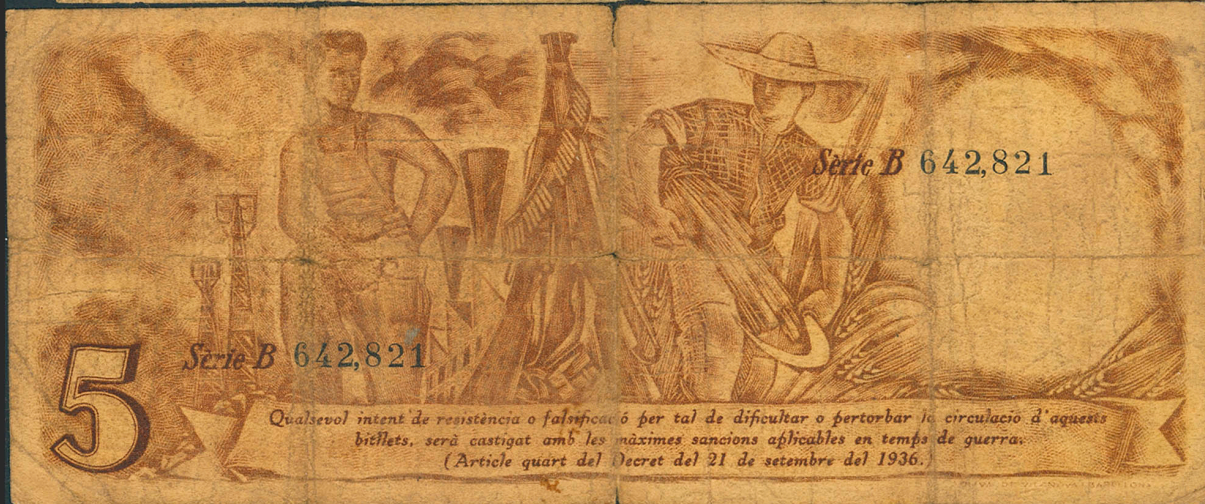 Sèrie B 642,821
5
Sèrie B 642,821
Qualsevol intent de resistència o falsificació per tal de dificultar o pertorbar la circulació d'aquests
bitllets, serà castigat amb les màximes sancions aplicables en temps de guerra.
(Article quart del Decret del 21 de setembre del 1936.)